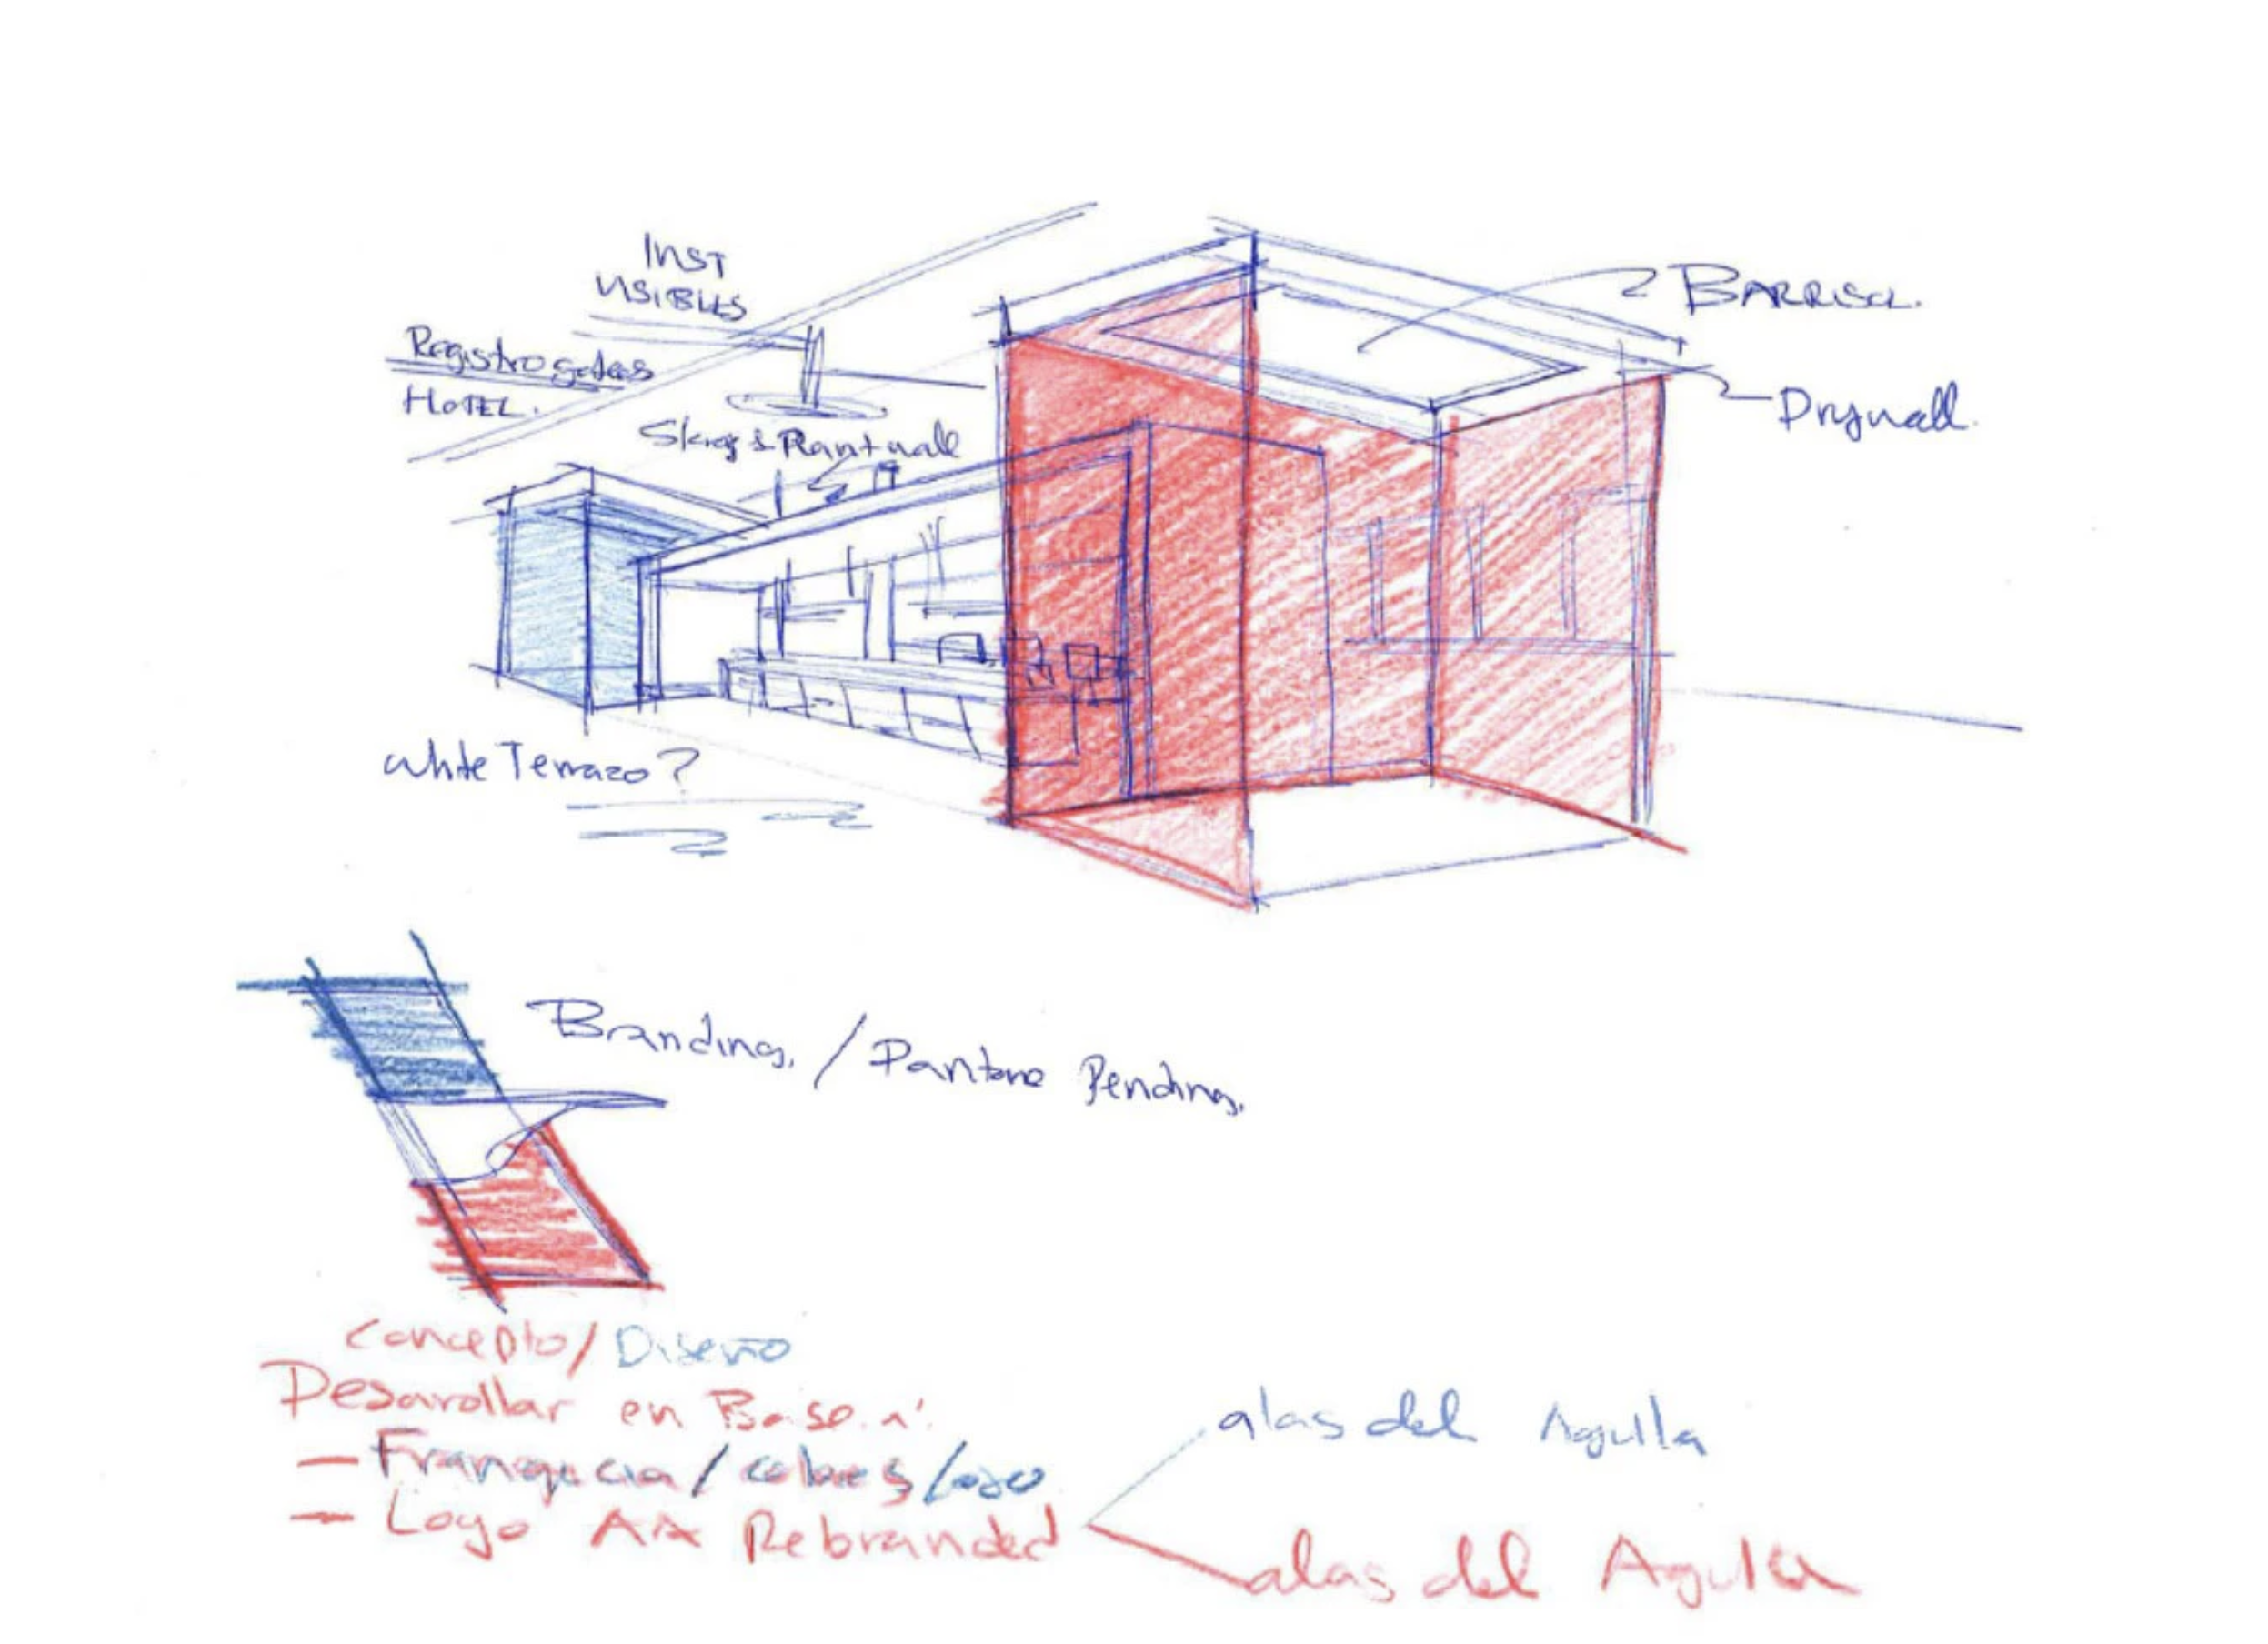 INST
VISIBLES
BARRISOL.
Registro
HOTEL.
Drywall.
& Plant wall
white Terrazo?
Branding. / Pantone Pending.
Concepto/Diseño
Desarollar en Base a:
- Franquicia / colores / logo
- Logo AA Rebranded
alas del Aguila
alas del Aguila